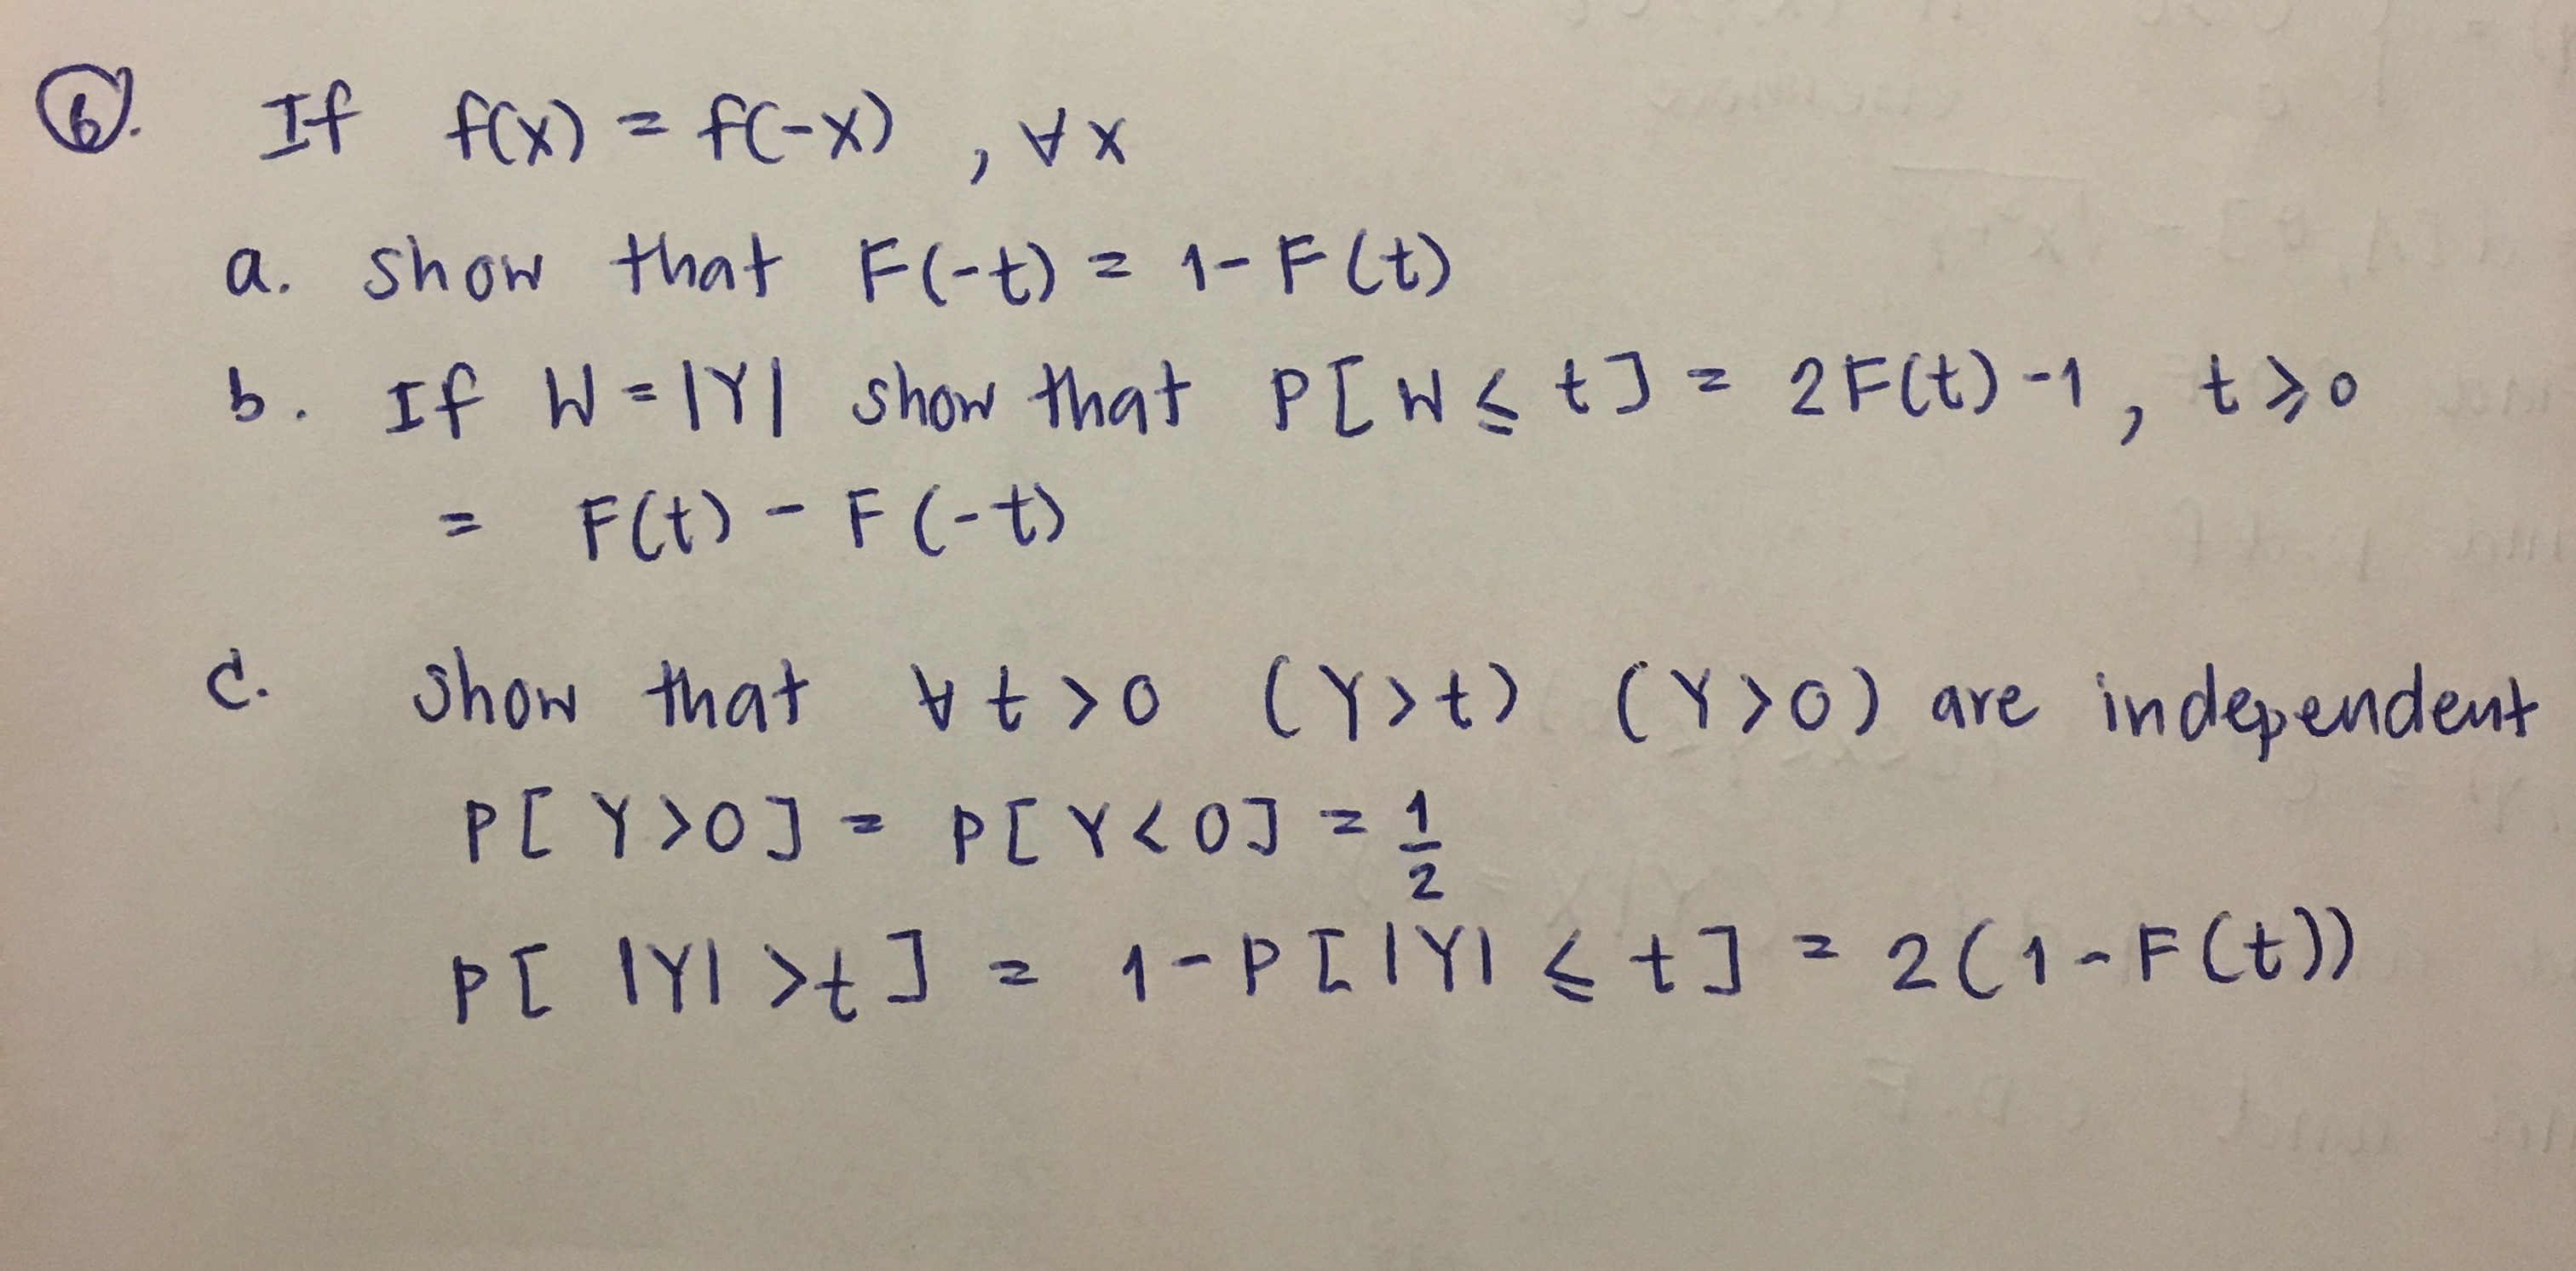 6. If f(x) = f(-x) , ∀x
a. show that F(-t) = 1-F(t)
b. If W = |Y| show that P[W ≤ t] = 2F(t)-1, t ≥ 0
= F(t) - F(-t)
c. show that ∀ t > 0 (Y>t) (Y>0) are independent
P[Y>0] = P[Y<0] = 1/2
P[ |Y| >t] = 1-P[|Y| ≤ t] = 2(1-F(t))